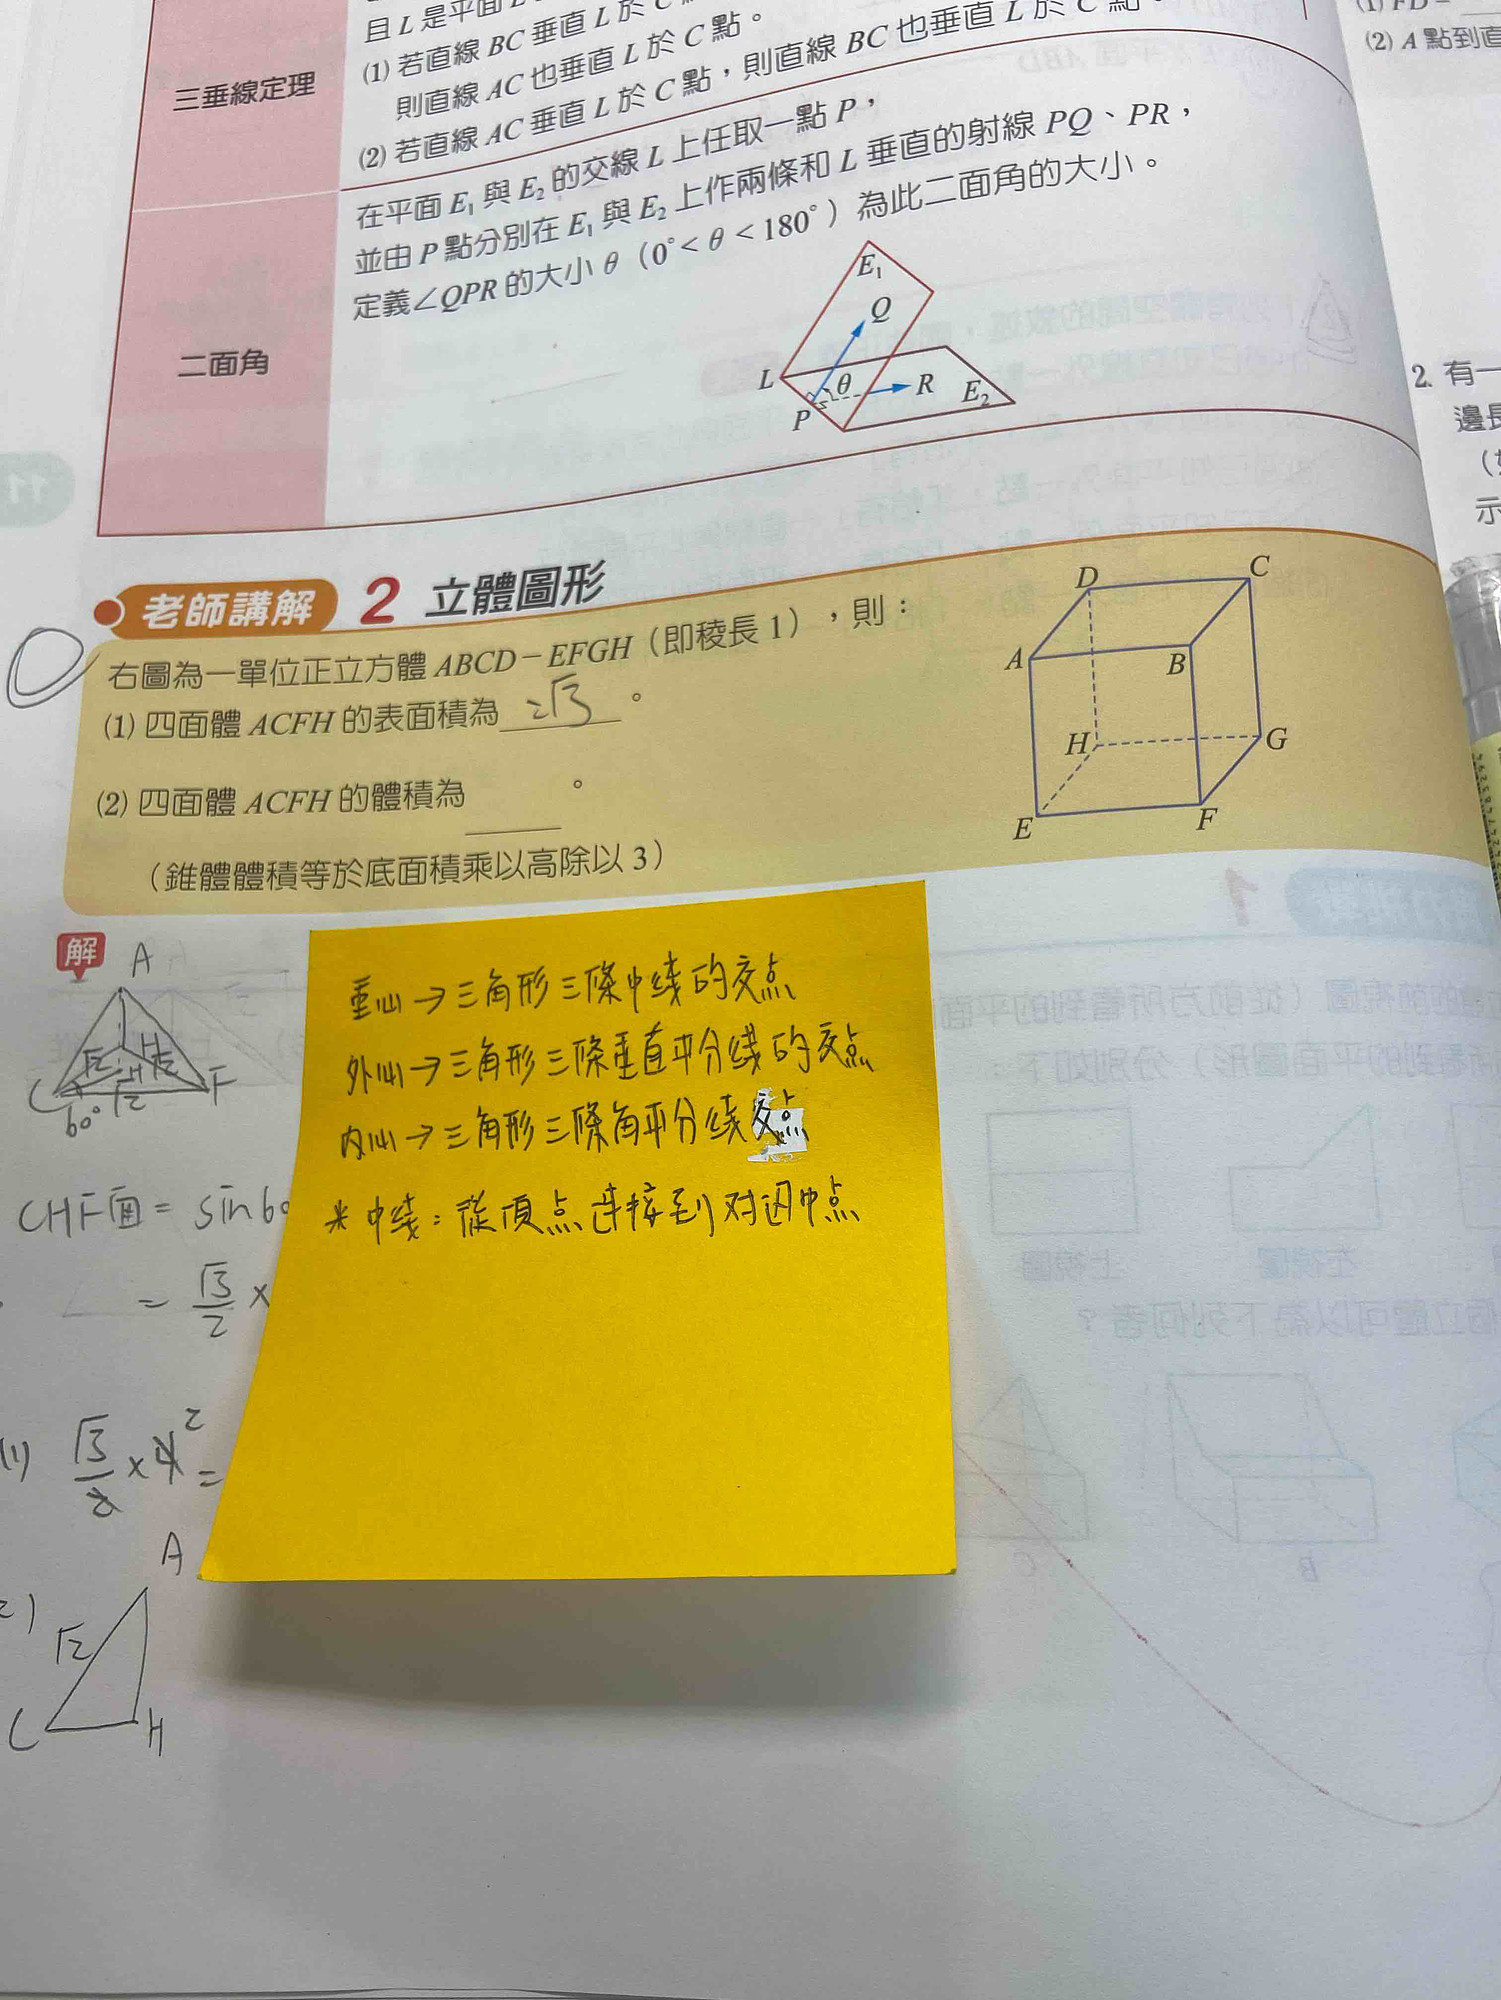 且 L 是平面
(1) 若直線 BC 垂直 L 於 C
則直線 AC 也垂直 L 於 C 點。
(2) 若直線 AC 垂直 L 於 C 點，則直線 BC 也垂直 L 於 C 點。
三垂線定理
在平面 E₁ 與 E₂ 的交線 L 上任取一點 P，
並由 P 點分別在 E₁ 與 E₂ 上作兩條和 L 垂直的射線 PQ、PR，
定義∠QPR 的大小 θ（0°< θ < 180°）為此二面角的大小。
二面角
E₁
Q
L
θ
R
E₂
P
(2) A 點到直
2. 有一
邊長
示
老師講解 2 立體圖形
右圖為一單位正立方體 ABCD－EFGH（即稜長 1），則：
(1) 四面體 ACFH 的表面積為 2√3 。
(2) 四面體 ACFH 的體積為 。
（錐體體積等於底面積乘以高除以 3）
D
C
A
B
H
G
E
F
解
A
√2
H
√2
C
F
60°
√2
CHF面 = sin60
= √3/2 ×
(1) √3/2 × 4² =
A
√2
C
H
重心→三角形三條中线的交点
外心→三角形三條垂直平分线的交点
内心→三角形三條角平分线交点
* 中线：從頂点连接到对边中点